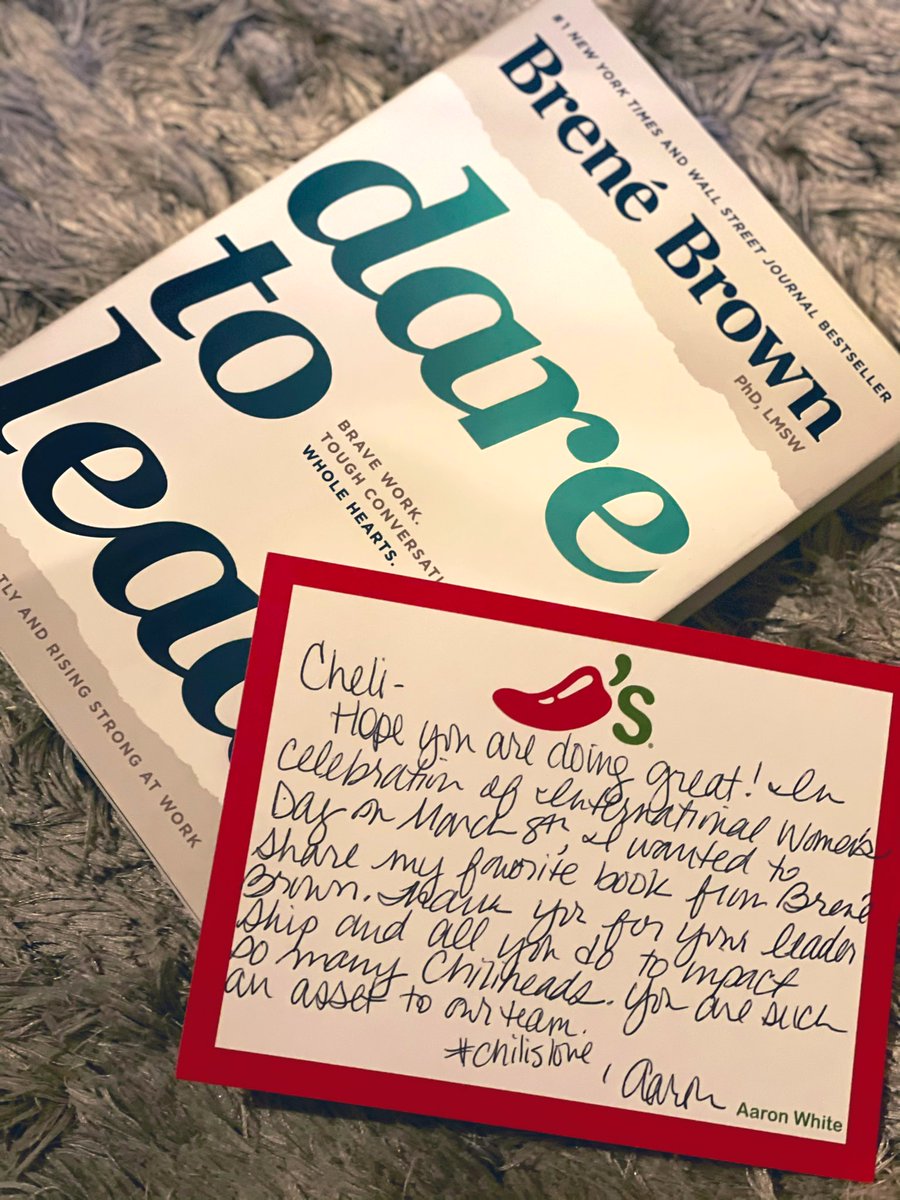 #1 NEW YORK TIMES AND WALL STREET JOURNAL BESTSELLER
Brené Brown
PhD, LMSW
dare
to
lead
BRAVE WORK.
TOUGH CONVERSATI
WHOLE HEARTS.
TLY AND RISING STRONG AT WORK
's
Cheli-
Hope you are doing great! In
celebration of International Women's
Day on March 8th, I wanted to
share my favorite book from Brené
Brown. Thank you for your leader
ship and all you do to impact
so many Chiliheads. You are such
an asset to our team.
#chilislove
, Aaron
Aaron White